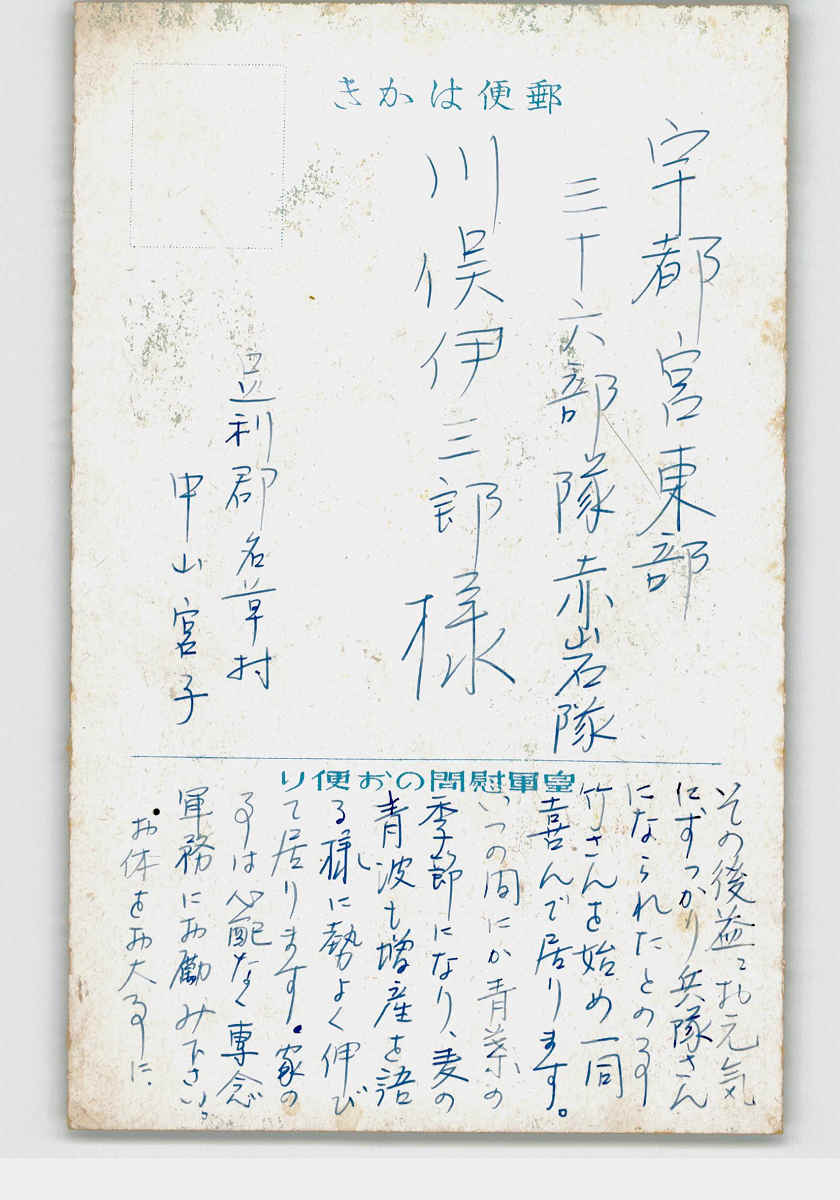 郵便はかき
宇都宮東部
三十六部隊赤岩隊
川俣伊三郎様
足利郡名草村
中山宮子
皇軍慰問のお便り
その後益々お元気
にすっかり兵隊さん
になられたとの事
竹さんを始め一同
喜んで居ります。
いつの間にか青葉の
季節になり、麦の
青波も増産を語
る様に勢よく伸び
て居ります。家の
事は心配なく専念
軍務にお励み下さい。
お体をお大事に、